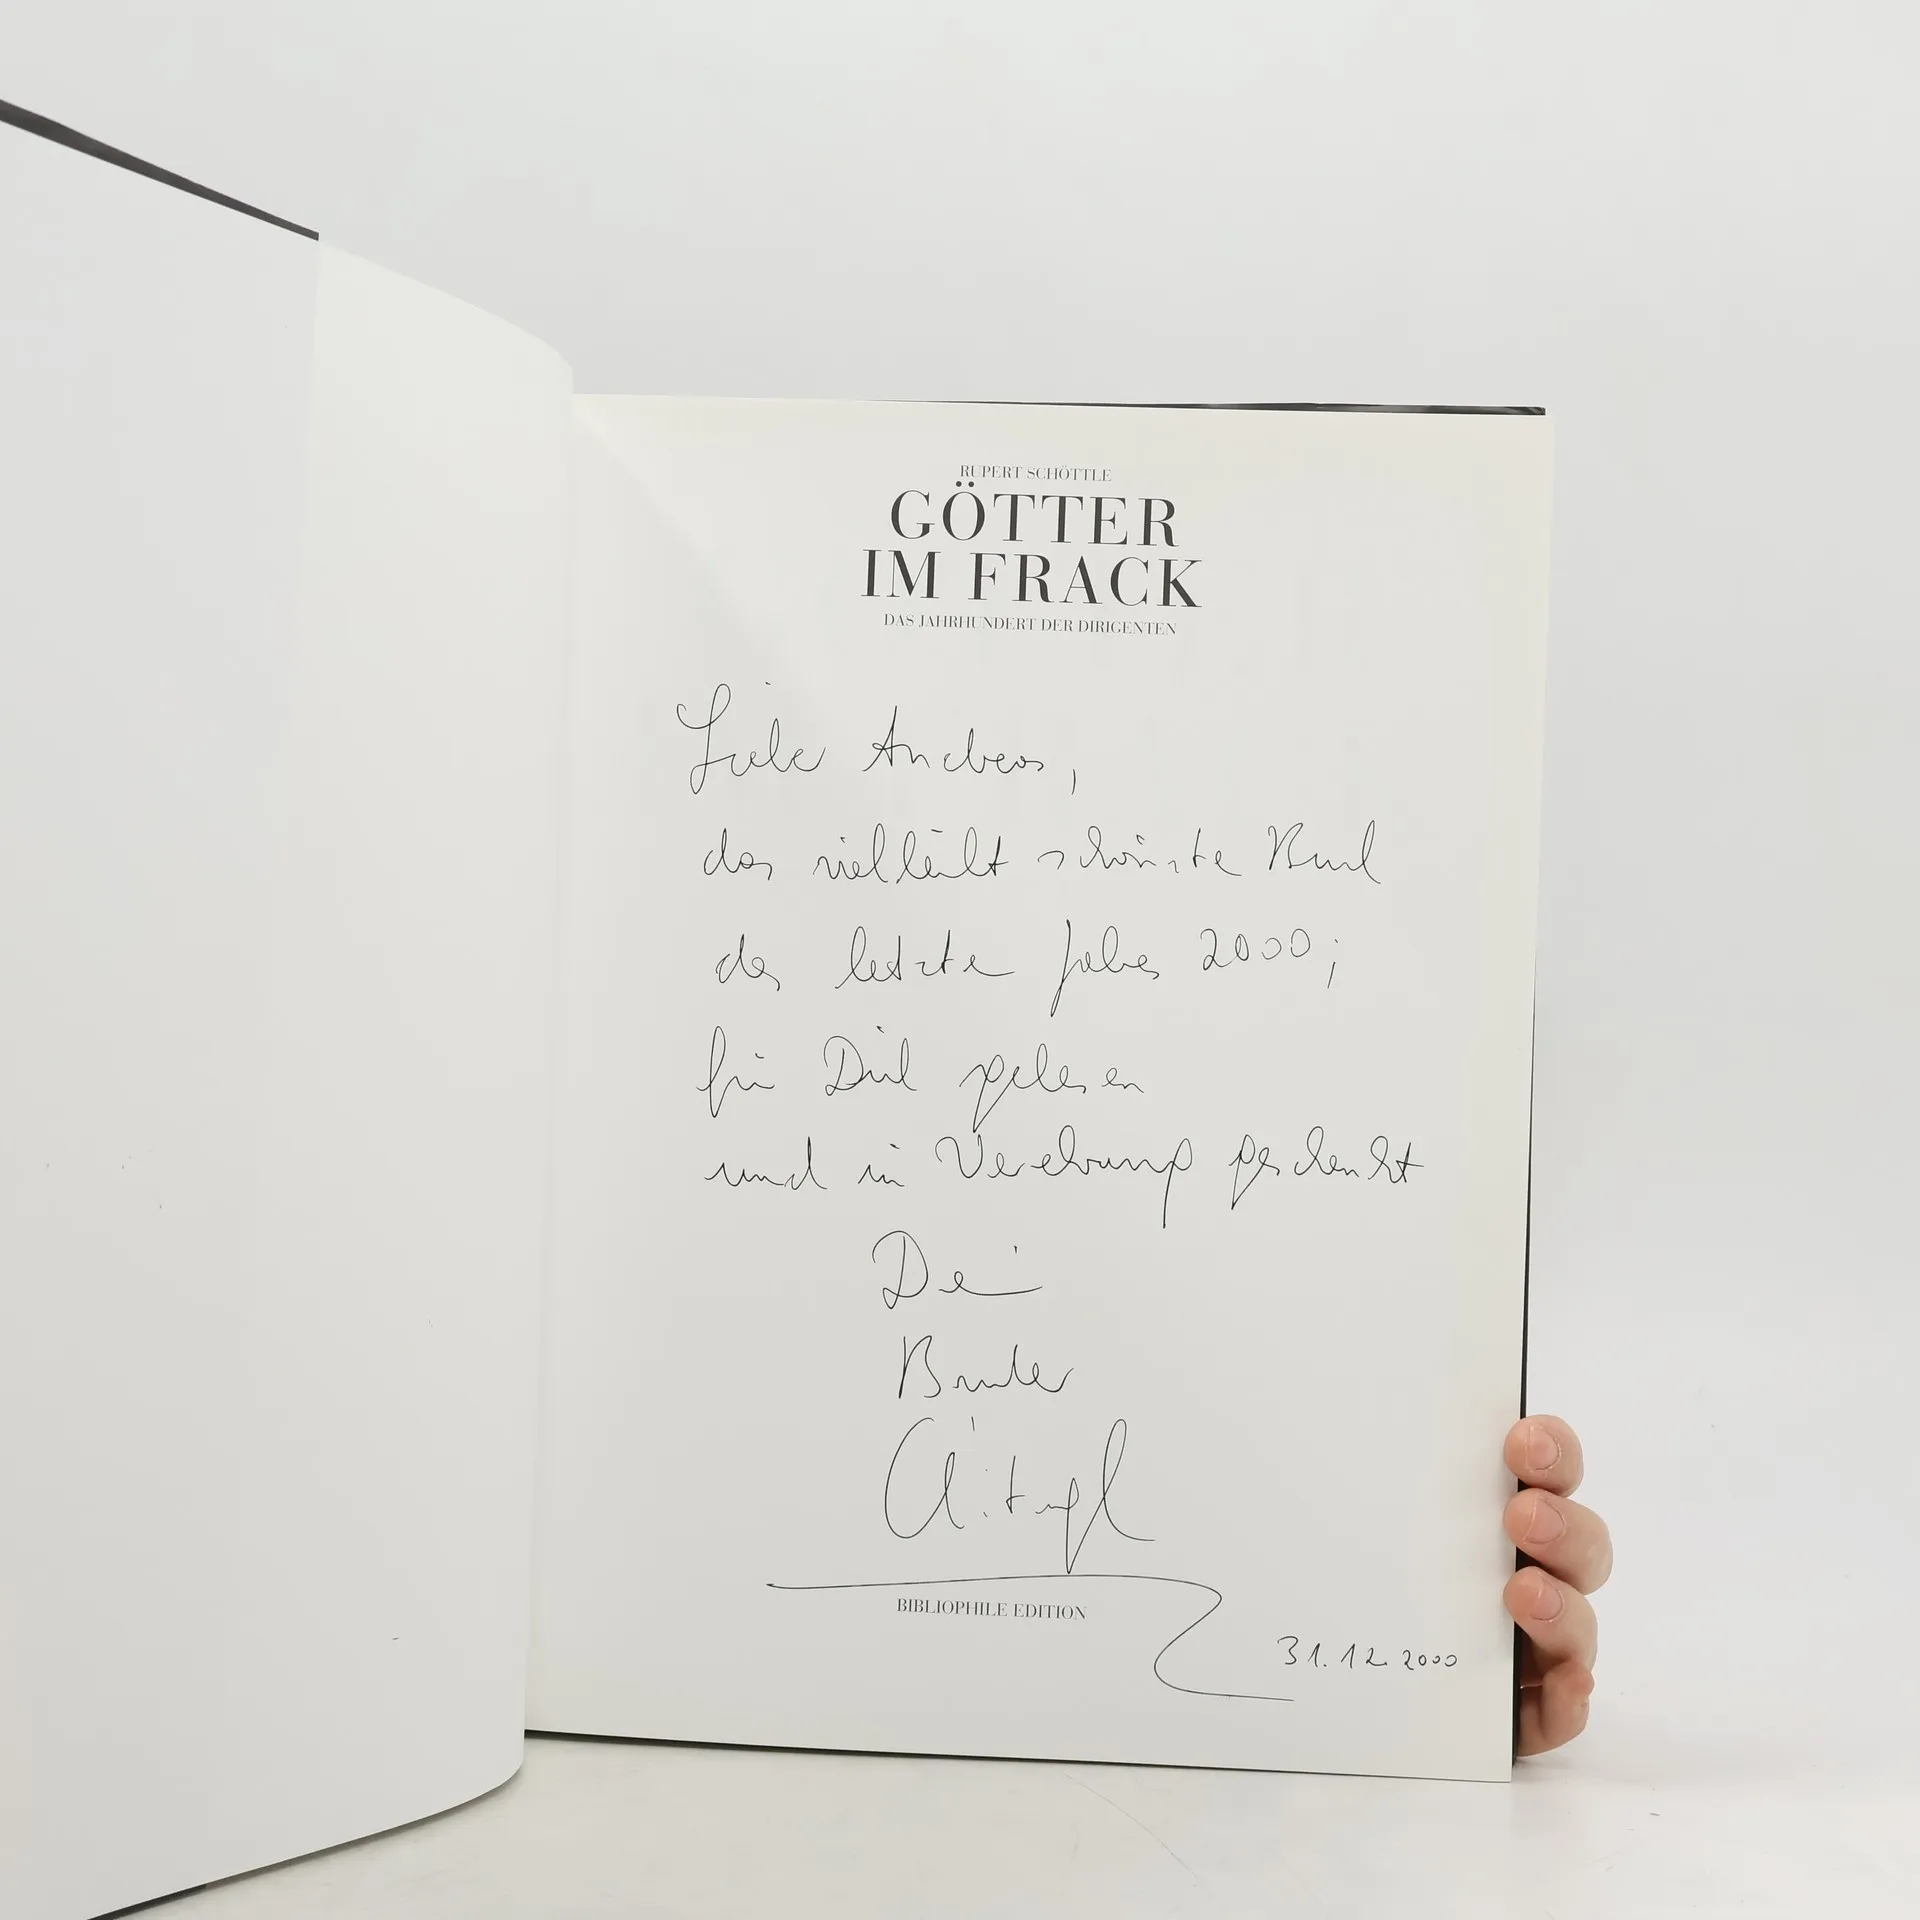 RUPERT SCHÖTTLE
GÖTTER
IM FRACK
DAS JAHRHUNDERT DER DIRIGENTEN
Lieber Andreas,
das vielleicht schönste Buch
des letzten Jahres 2000;
für Dich gelesen
und in Verehrung geschenkt
Dein
Bruder
BIBLIOPHILE EDITION
31.12.2000